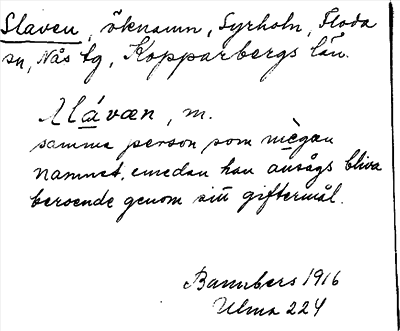 Slaven, öknamn, Syrholn, Floda
sn, Nås tg, Kopparbergs län.
slávæn, m.
samma person som mègan
namnet, emedan han ansågs bliva
beroende genom sitt giftermål.
Bannbers 1916
Ulma 224